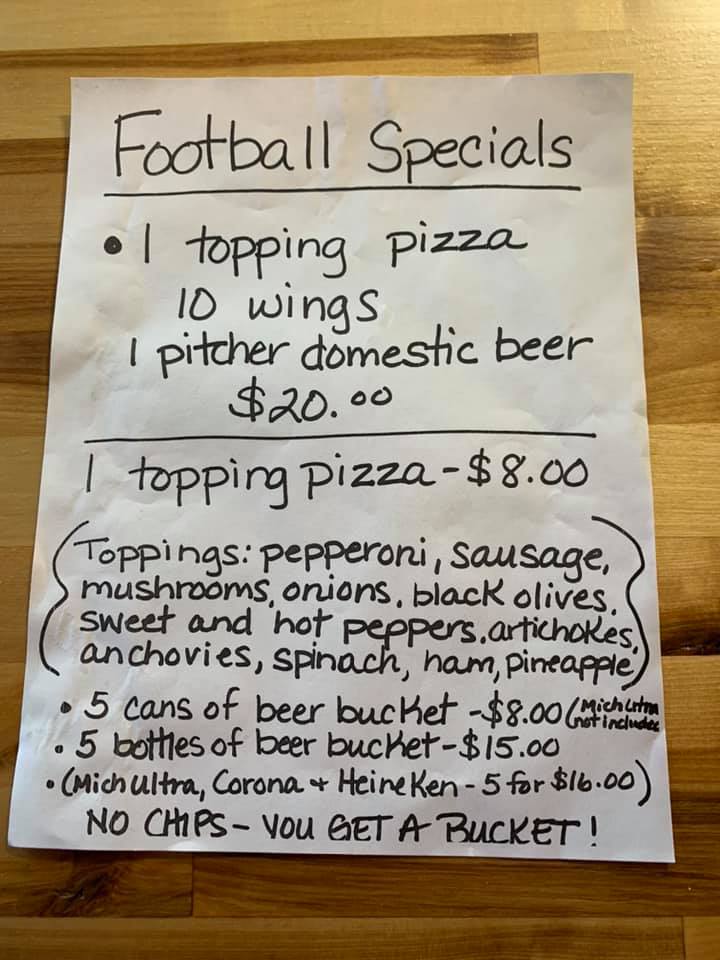 Football Specials
• 1 topping pizza
10 wings
1 pitcher domestic beer
$20.00
1 topping pizza - $8.00
(Toppings: pepperoni, sausage,
mushrooms, onions, black olives,
sweet and hot peppers, artichokes,
anchovies, spinach, ham, pineapple)
• 5 cans of beer bucket - $8.00 (Mich Ultra
not included
• 5 bottles of beer bucket - $15.00
• (Mich Ultra, Corona + Heineken - 5 for $16.00)
NO CHIPS - YOU GET A BUCKET!